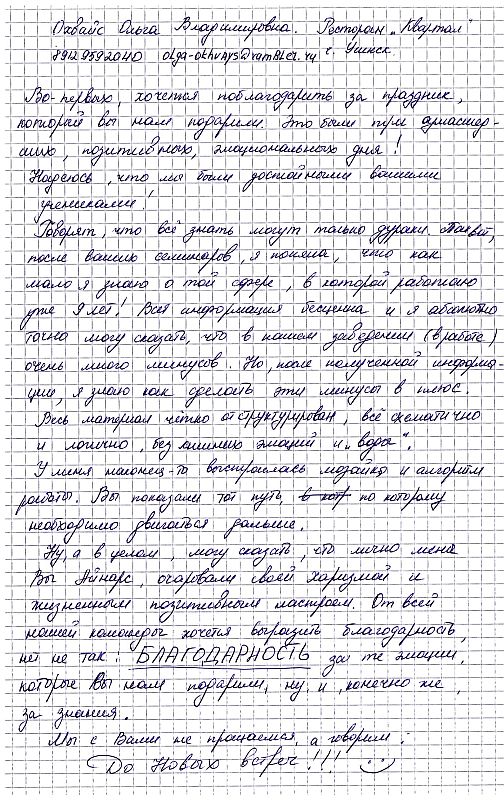 Охвайс Ольга Владимировна. Ресторан „Квартал"
89129592040 olga-okhvays@rambler.ru г. Усинск.
Во-первых, хочется поблагодарить за праздник,
который вы нам подарили. Это были три сумасшед-
ших, позитивных, эмоциональных дня!
Надеюсь, что мы были достойными вашими
учениками!
Говорят, что всё знать могут только дураки. Так вот,
после ваших семинаров, я поняла, что как
мало я знаю о той сфере, в которой работаю
уже 9 лет! Вся информация бесценна и я абсолютно
точно могу сказать, что в нашем заведении (в работе)
очень много минусов. Но, после полученной информа-
ции, я знаю как сделать эти минусы в плюс
Весь материал чётко отструктурирован, всё схематично
и логично, без лишних эмоций и „вода".
У меня наконец-то выстроилась мозайка и алгоритм
работы. Вы показали тот путь, в кот по которому
необходимо двигаться дальше.
Ну, а в целом, могу сказать, что лично меня
Вы Айнарс, очаровали своей харизмой и
жизненным позитивным настроем. От всей
нашей команды хочется выразить благодарность,
нет не так: БЛАГОДАРНОСТЬ за те эмоции,
которые Вы нам подарили, ну, и, конечно же,
за знания.
Мы с Вами не прощаемся, а говорим:
До Новых встреч!!!